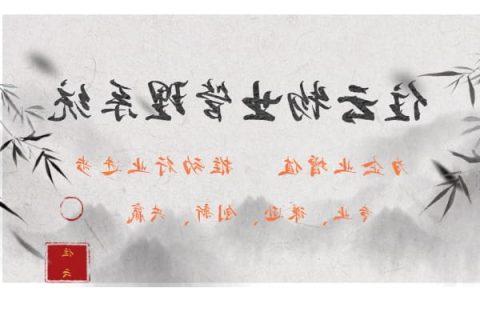 住云物业管理系统
为企业增值 推动行业进步
专业、保密、创新、共赢
住云